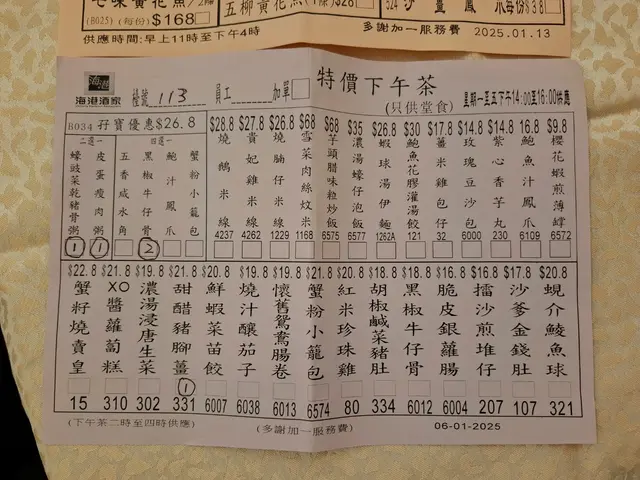 (B025) (每份) $168
五柳黃花魚
供應時間:早上11時至下午4時
多謝加一服務費 2025.01.13
海港
海港酒家
檯號 113 員工 加單
特價下午茶
(只供堂食)
星期一至五下午14:00至16:00供應
B034 孖寶優惠$26.8
二選一
蠔豉菜乾豬骨粥 1
皮蛋瘦肉粥 1
四選一
五香咸水角
黑椒牛仔骨 2
鮑汁鳳爪
蟹粉小籠包
$28.8 燒鵝米線 4237
$27.8 貴妃雞米線 4262
$26.8 燒腩仔米線 1229
$68 雪菜肉絲炆米 1168
$68 芋頭腊味粒炒飯 6575
$35 濃湯蠔仔泡飯 6577
$26.8 蝦球湯伊麵 1262A
$30 鮑魚花膠灌湯餃 121
$17.8 薑米雞包仔 32
$14.8 玫瑰豆沙包 6000
$14.8 紫心香芋丸 230
16.8 鮑魚汁鳳爪 6109
$9.8 櫻花蝦煎薄罉 6572
$22.8 蟹籽燒賣皇 15
$21.8 XO醬蘿蔔糕 310
$19.8 濃湯浸唐生菜 302
$21.8 甜醋豬腳薑 1 331
$20.8 鮮蝦菜苗餃 6007
$19.8 燒汁釀茄子 6038
$19.8 懷舊鴛鴦腸卷 6013
$21.8 蟹粉小籠包 6574
$20.8 紅米珍珠雞 80
$18.8 胡椒鹹菜豬肚 334
$19.8 黑椒牛仔骨 6012
$20.8 脆皮銀蘿腸 6004
$16.8 擂沙煎堆仔 207
$17.8 沙爹金錢肚 107
$20.8 蜆介鯪魚球 321
(下午茶二時至四時供應)
(多謝加一服務費)
06-01-2025